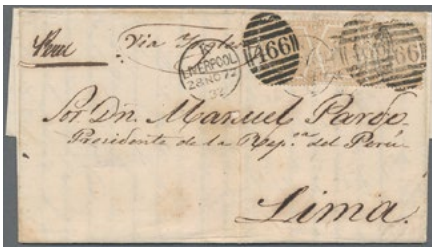 Peru Via Ingla
K
LIVERPOOL
28 NO 72
466 466 466
Sor. Dn. Manuel Pardo
Presidente de la Rep.ca del Perú
Lima.